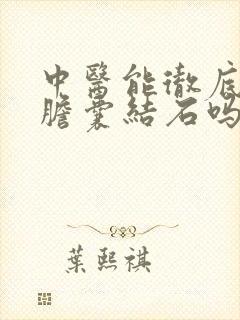 中醫能徹底
膽囊結石嗎
葉熙祺